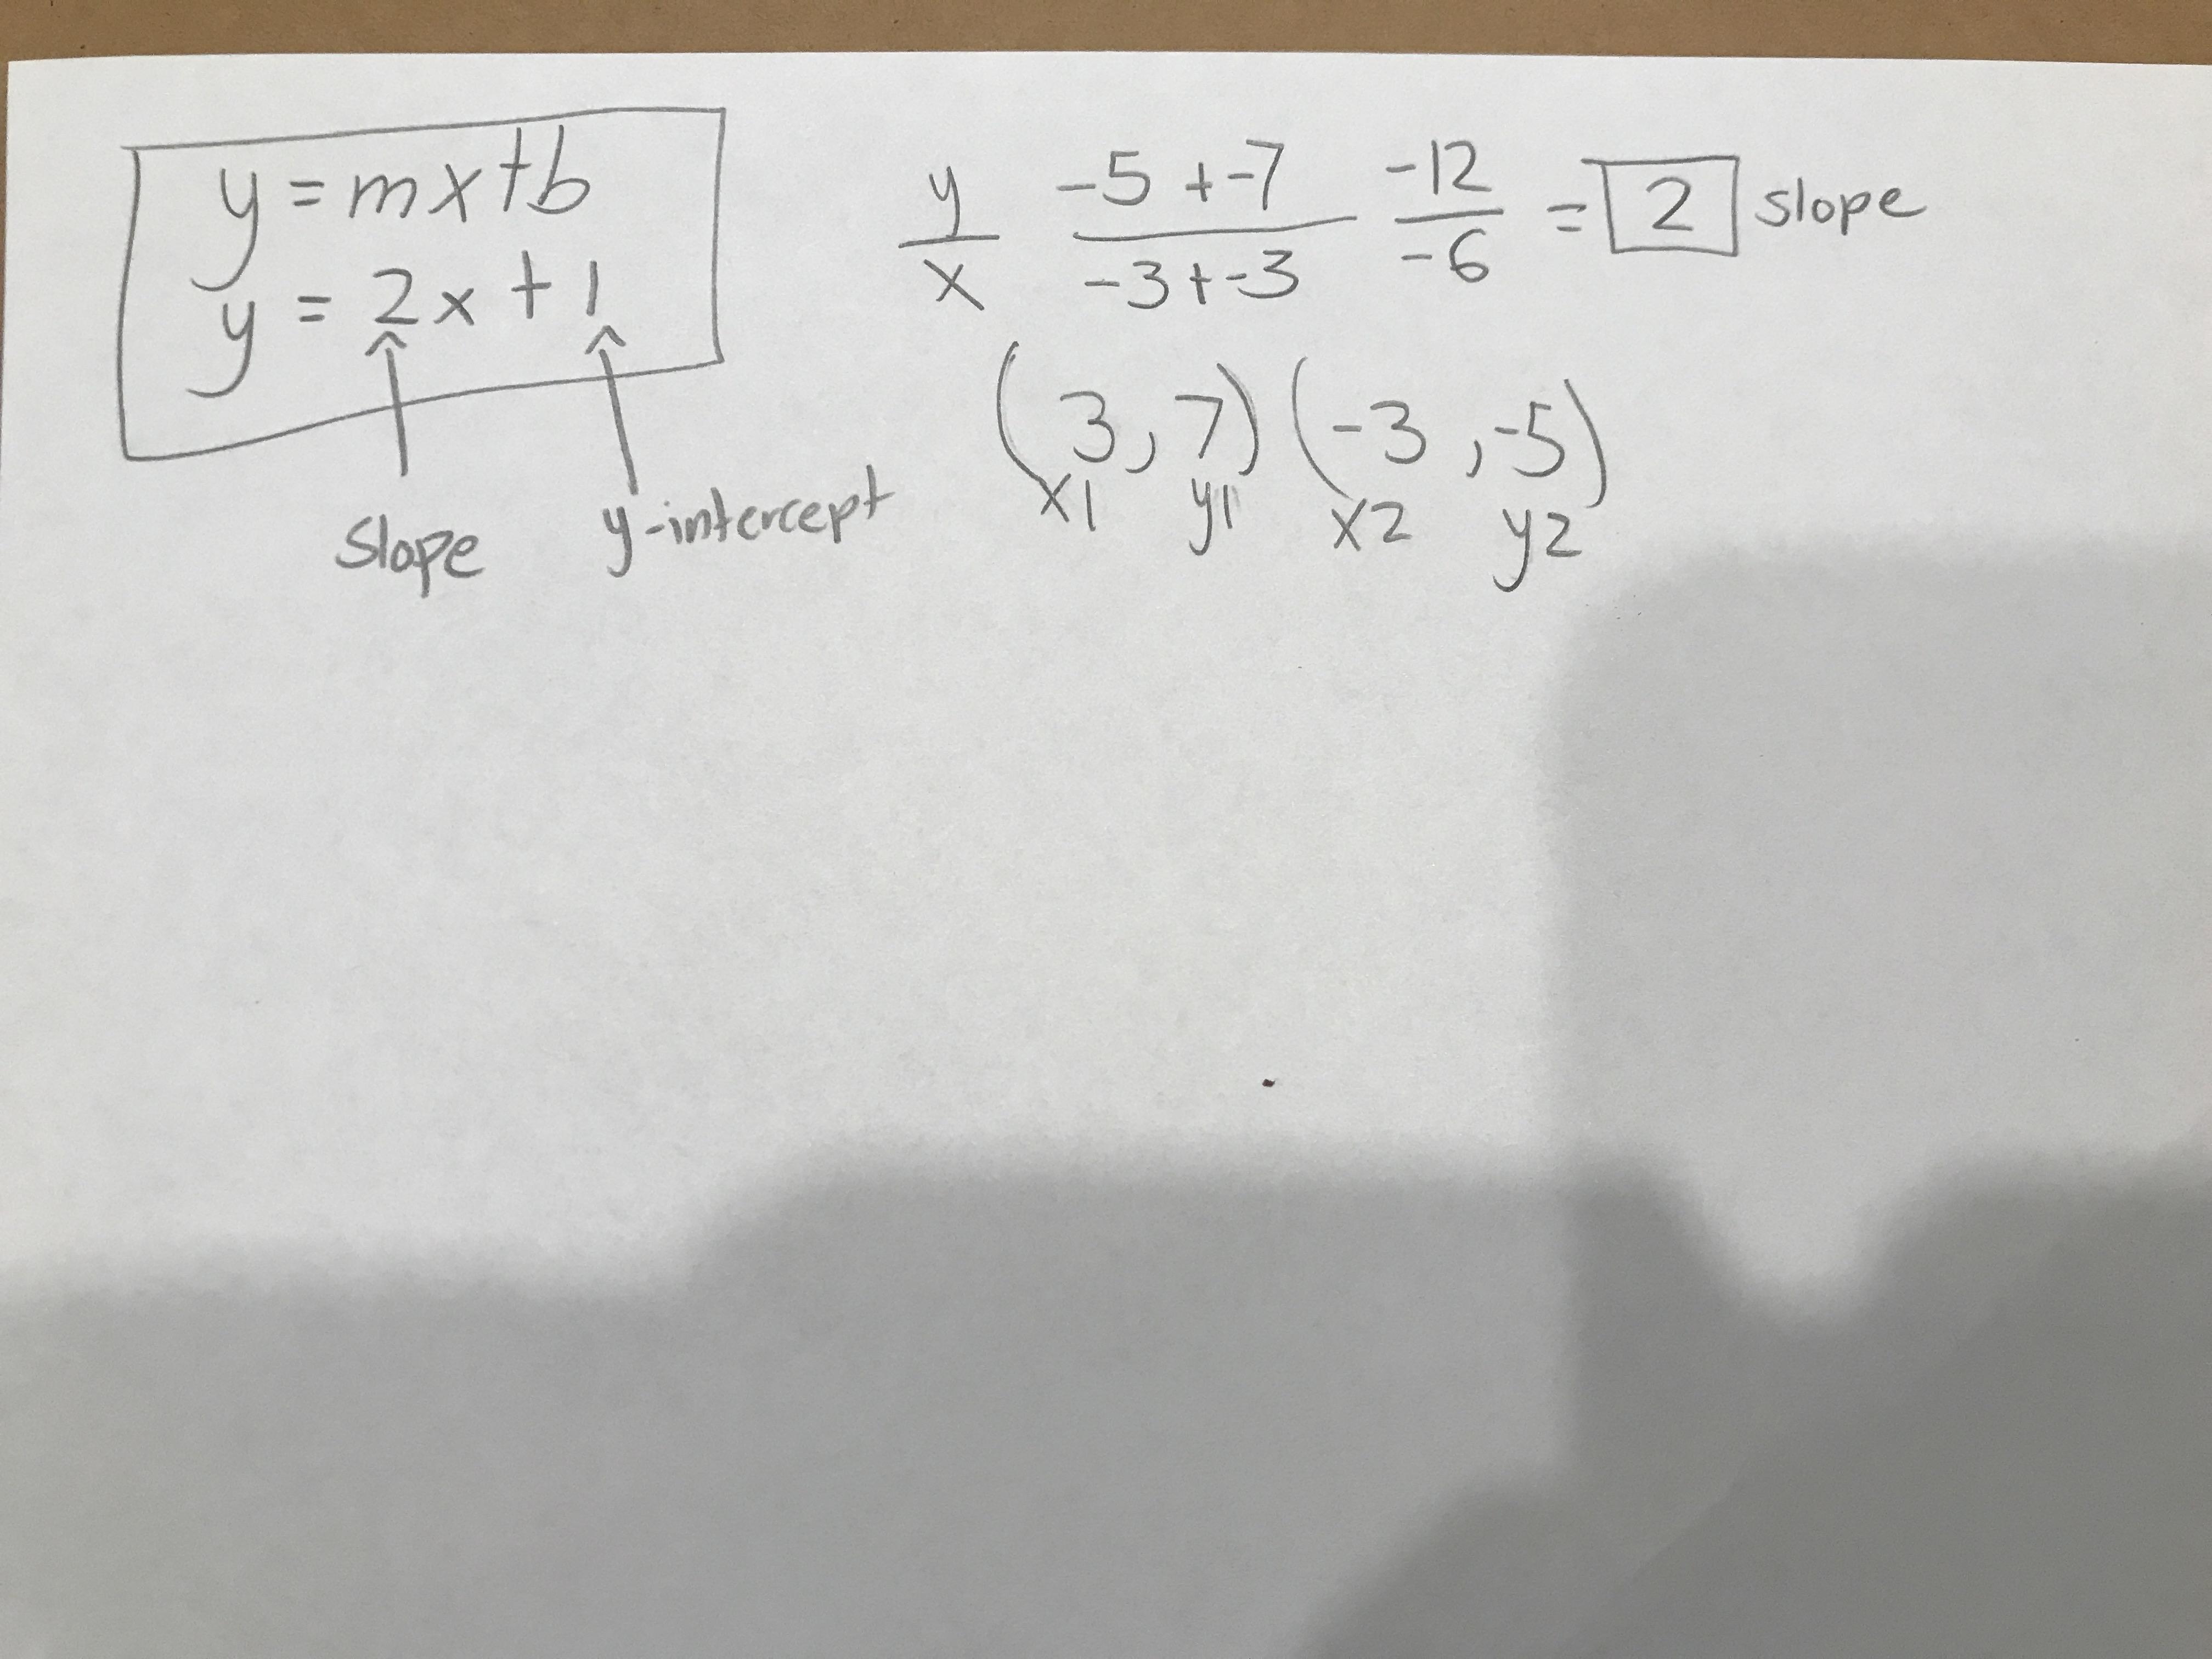 y = mx+b
y = 2x + 1
slope y-intercept
y/x -5 + -7/-3 + -3 -12/-6 = 2 slope
(3, 7) (-3, -5)
x1 y1 x2 y2